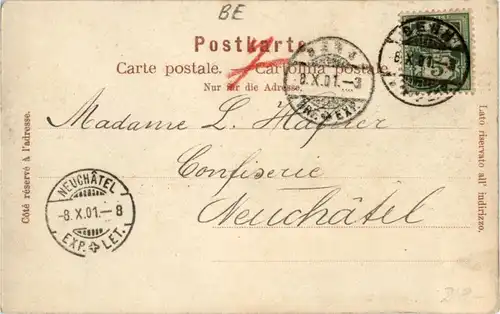 BE
Postkarte.
Carte postale. Cartolina postale
Nur für die Adresse.
BERN
-8.X.01.-3
BRF. EXP.
BERN
8.X.01.-3
5
Madame L. Häfner
Confiserie
Neuchâtel
NEUCHÂTEL
-8.X.01.-8
EXP. LET.
Côté réservé à l'adresse.
Lato riservato all' indirizzo.